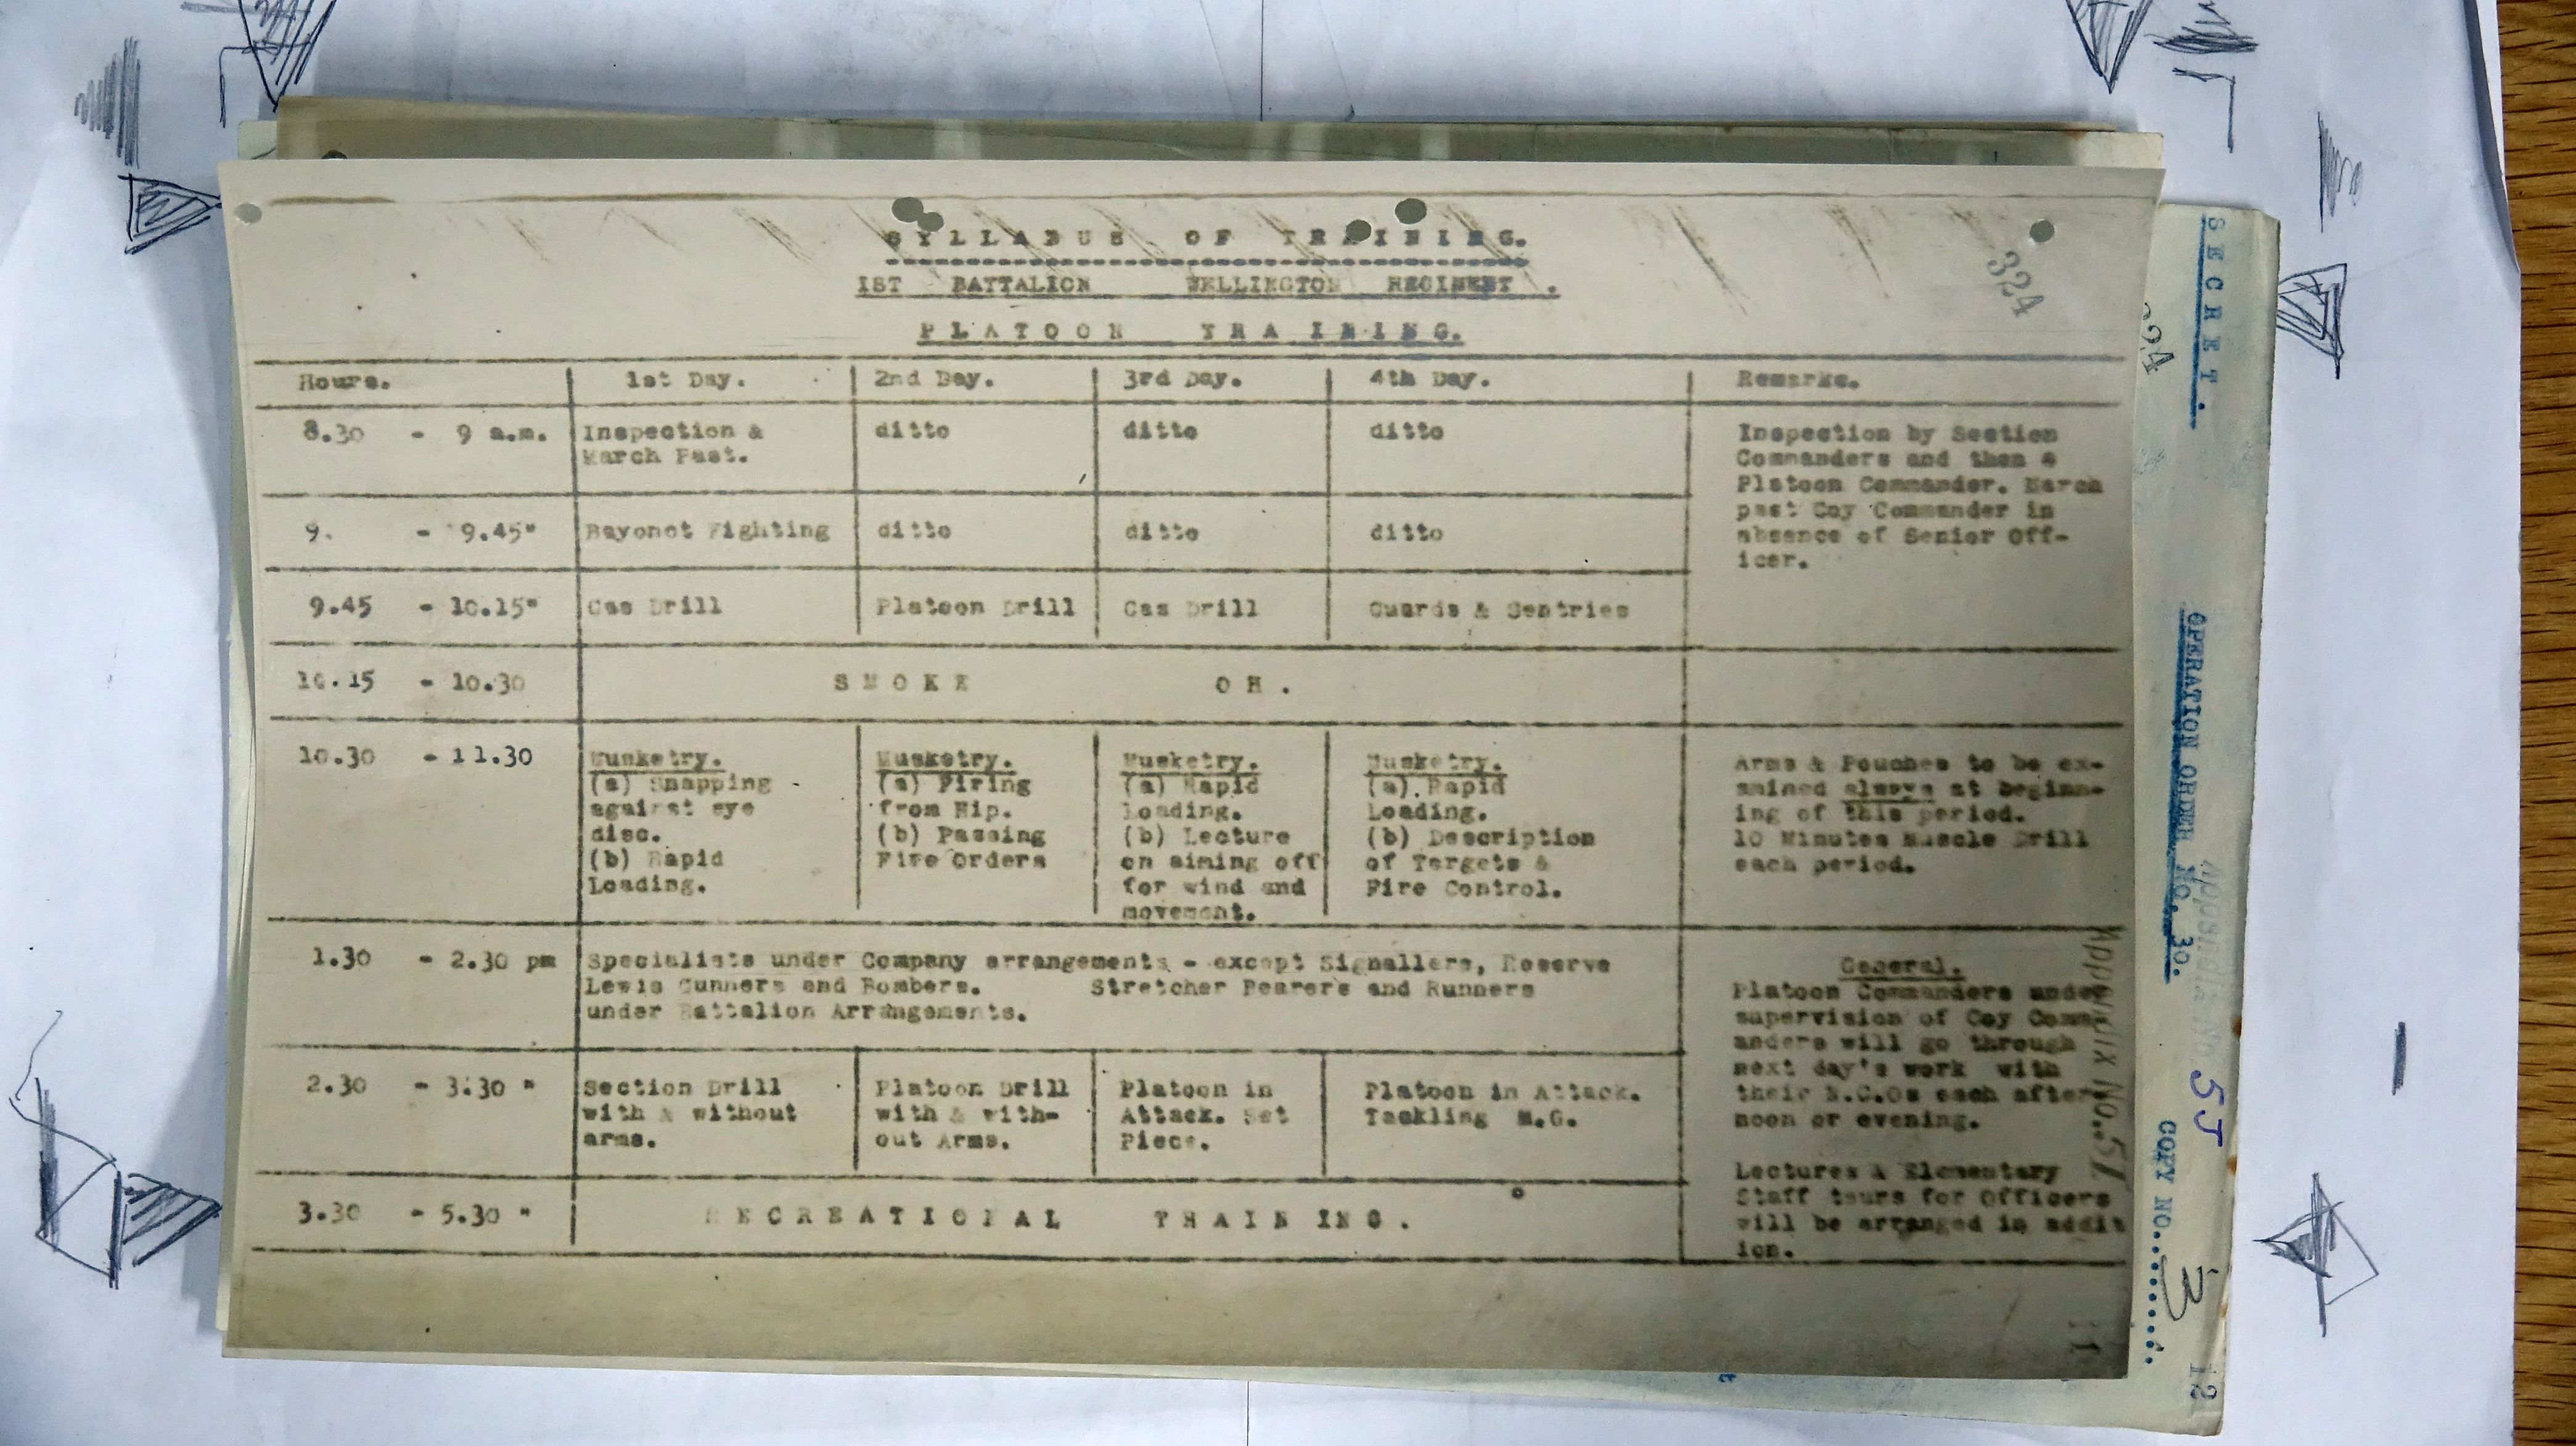 SYLLABUS OF TRAINING.
1ST BATTALION WELLINGTON REGIMENT .
PLATOON TRAINING.
324
Hours. 1st Day. 2nd Day. 3rd Day. 4th Day. Remarks.
8.30 - 9 a.m. Inspection & ditto ditto ditto Inspection by Section
March Past. Commanders and then
Platoon Commander. March
past Coy Commander in
absence of Senior Off-
icer.
9. - 9.45" Bayonet Fighting ditto ditto ditto
9.45 - 10.15" Gas Drill Platoon Drill Gas Drill Guards & Sentries
10.15 - 10.30 SMOKE OH.
10.30 - 11.30
Musketry.
(a) Snapping
against eye
disc.
(b) Rapid
Loading.
Musketry.
(a) Firing
from Hip.
(b) Passing
Fire Orders
Musketry.
(a) Rapid
Loading.
(b) Lecture
on aiming off
for wind and
movement.
Musketry.
(a). Rapid
Loading.
(b) Description
of Targets &
Fire Control.
Arms & Pouches to be ex-
amined always at beginn-
ing of this period.
10 Minutes Muscle Drill
each period.
1.30 - 2.30 pm
Specialists under Company arrangements - except Signallers, Reserve
Lewis Gunners and Bombers. Stretcher Bearers and Runners
under Battalion Arrangements.
General.
Platoon Commanders under
supervision of Coy Comm-
anders will go through
next day's work with
their N.C.Os each after-
noon or evening.
Lectures & Elementary
Staff tours for Officers
will be arranged in addit
ion.
2.30 - 3.30 "
Section Drill
with & without
arms.
Platoon Drill
with & with-
out Arms.
Platoon in
Attack. Set
Piece.
Platoon in Attack.
Tackling M.G.
3.30 - 5.30 " RECREATIONAL TRAINING.
Appendix No. 51
11
SECRET.
324
OPERATION ORDER NO. 30.
Appendix No 55
COPY NO. 3
12